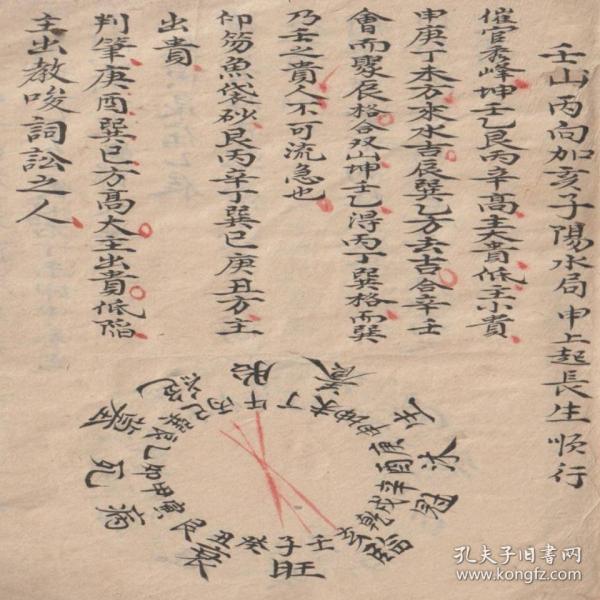 壬山丙向加亥子陽水局申上起長生順行
催官秀峰坤壬乙艮丙辛高主大貴低主小貴
申庚丁未方來水吉辰巽乙方去吉合辛壬
會而聚辰格合双山坤壬乙得丙丁巽格而巽
乃壬之貴人不可流急也
印笏魚袋砂艮丙辛丁巽巳庚丑方主
出貴
判筆庚酉巽巳方高大主出貴低陷
主出教唆詞訟之人
胎養生沐冠臨旺衰病死墓絕
午丁未坤申庚酉辛戌乾亥壬子癸丑艮寅甲卯乙辰巽巳丙
孔夫子旧书网
www.kongfz.com